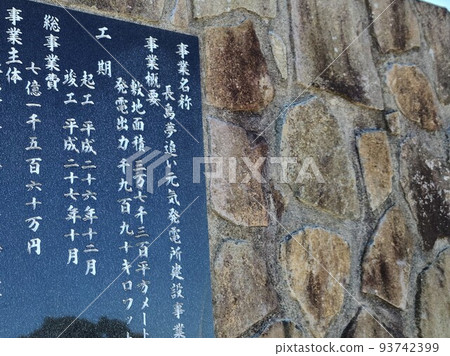 事業名称
長島夢追い元気発電所建設事業
事業概要
敷地面積 二万七千三百平方メート
発電出力 千九百九十キロワット
工期
起工 平成二十六年十二月
竣工 平成二十七年十月
総事業費
七億一千五百六十万円
事業主体
93742399